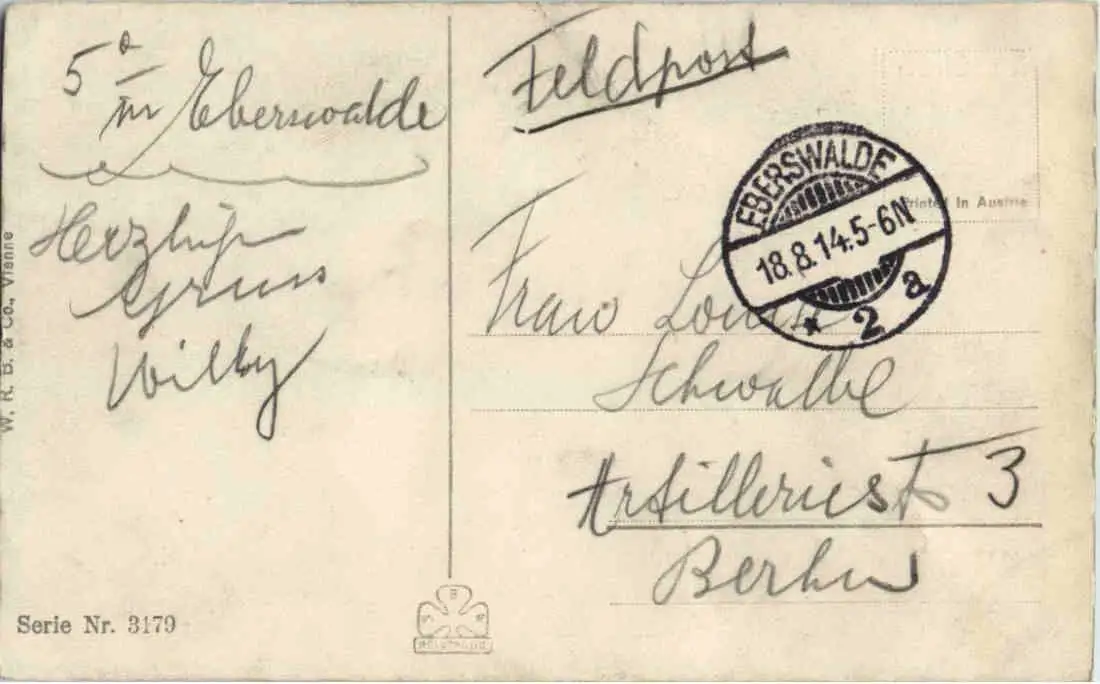 Feldpost
5 a
in Eberswalde
Herzlich
Gruss
Willy
EBERSWALDE
18.8.14.5-6N
* 2 a
Printed in Austria
Frau Louise
Schwalbe
Artilleriest 3
Berlin
W. R. B. & Co., Vienne
Serie Nr. 3179